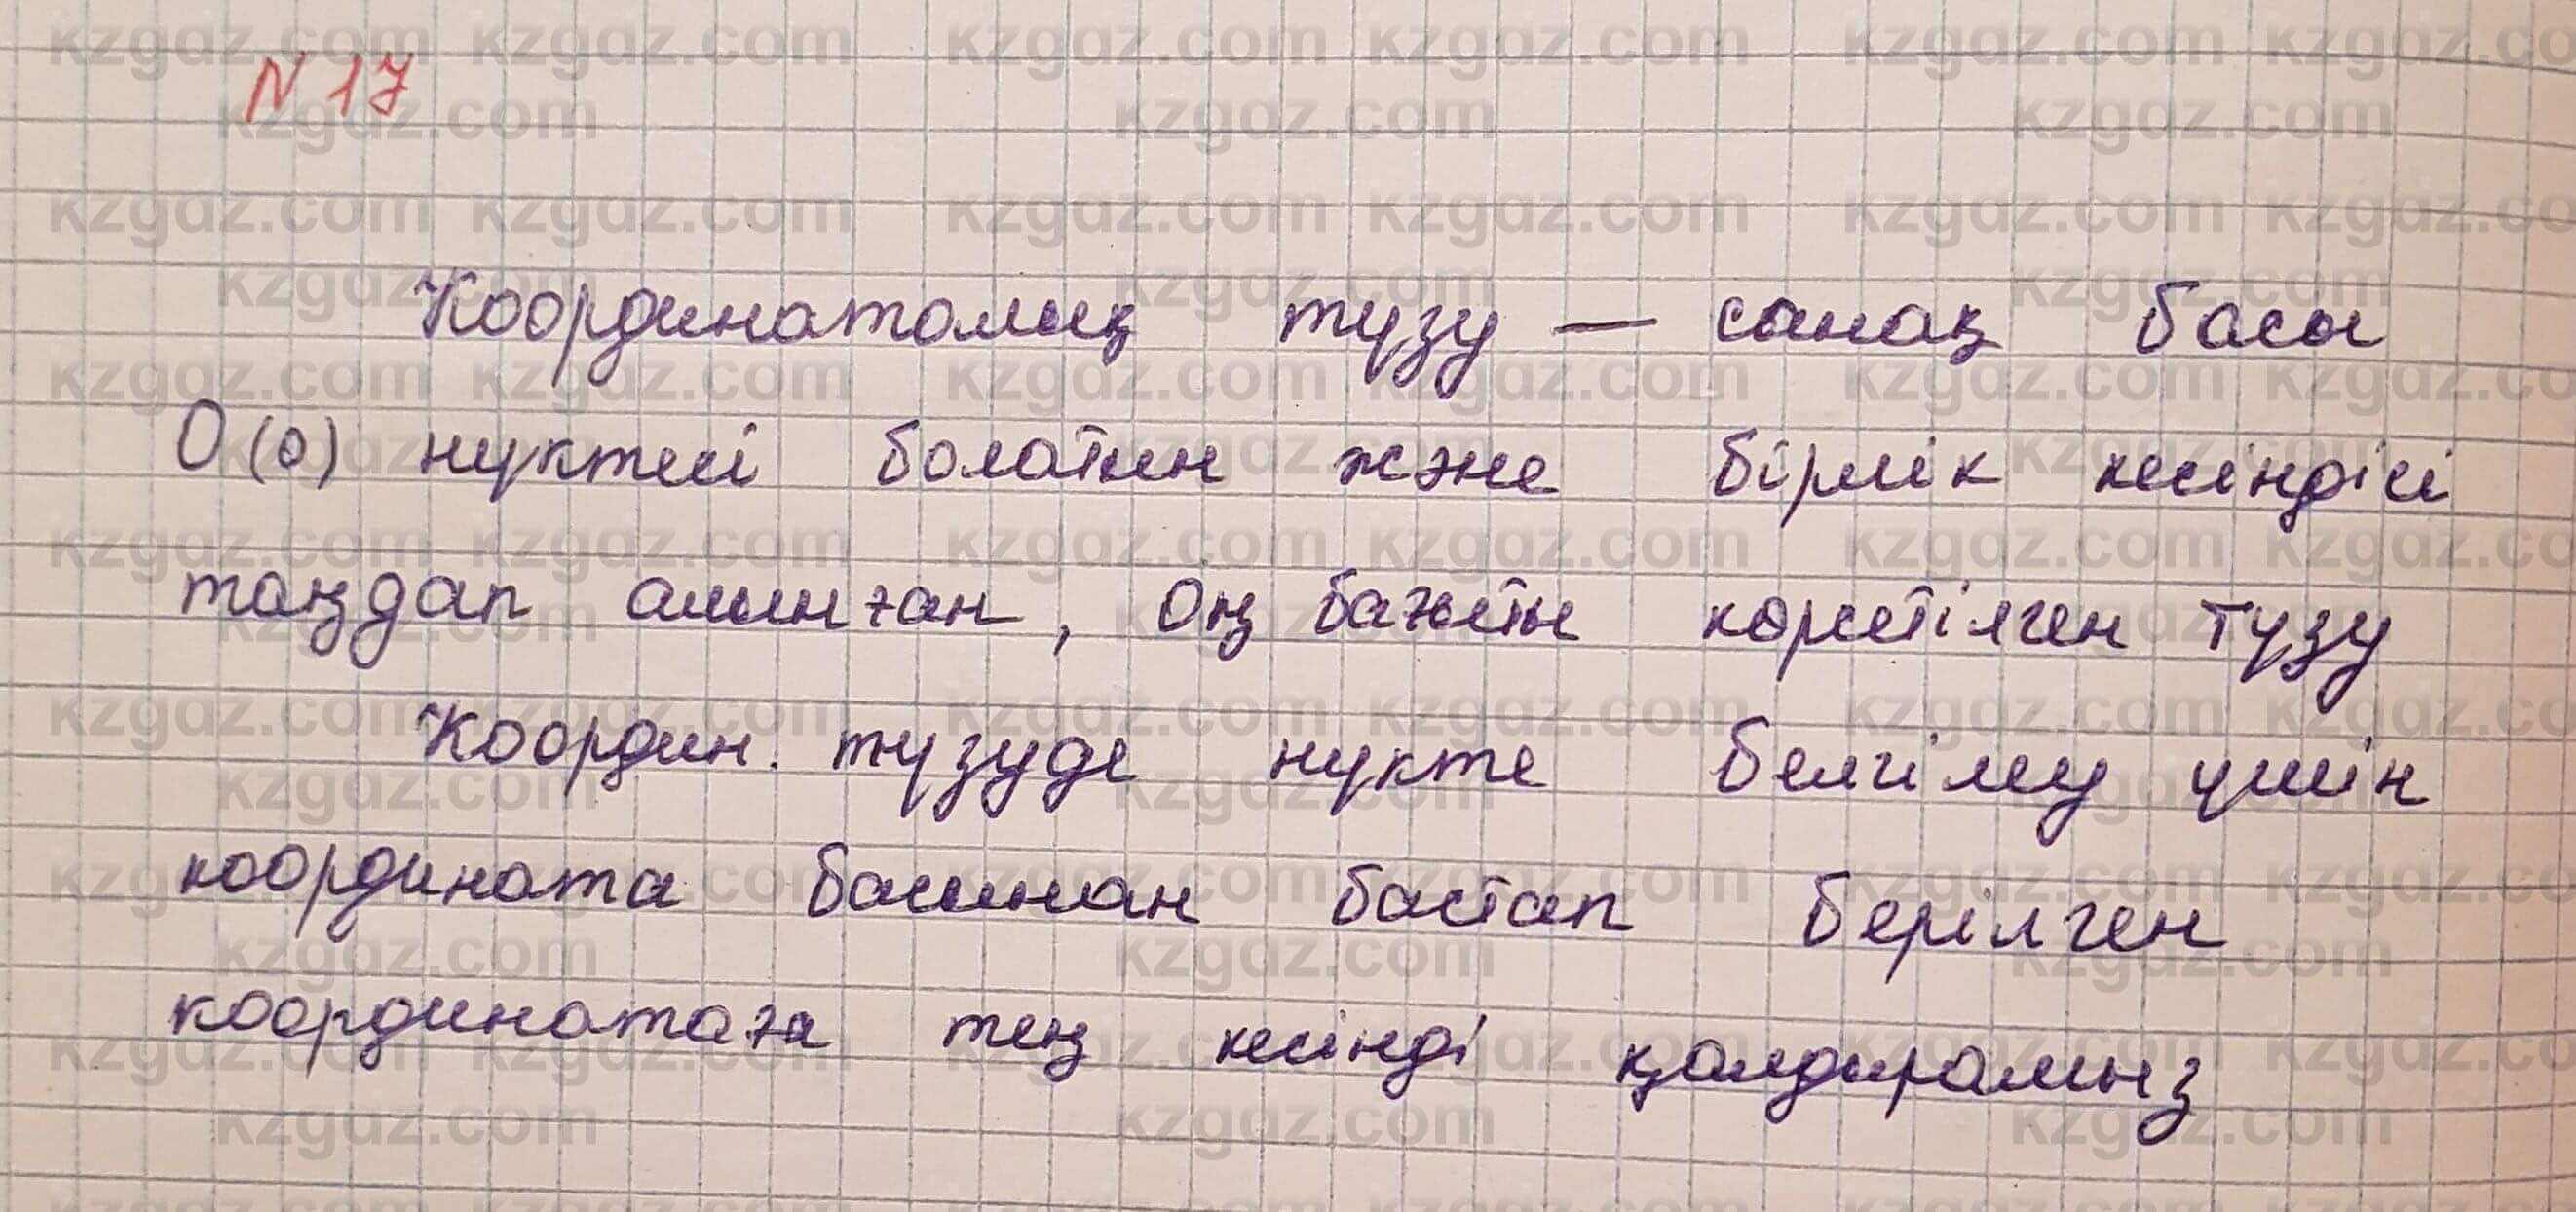 N 17
Координаталық түзу — санақ басы
O(0) нүктесі болатын және бірлік кесіндісі
таңдап алынған, оң бағыты көрсетілген түзу
Координ. түзуде нүкте белгілеу үшін
координата басынан бастап берілген
координатаға тең кесінді қалдырамыз